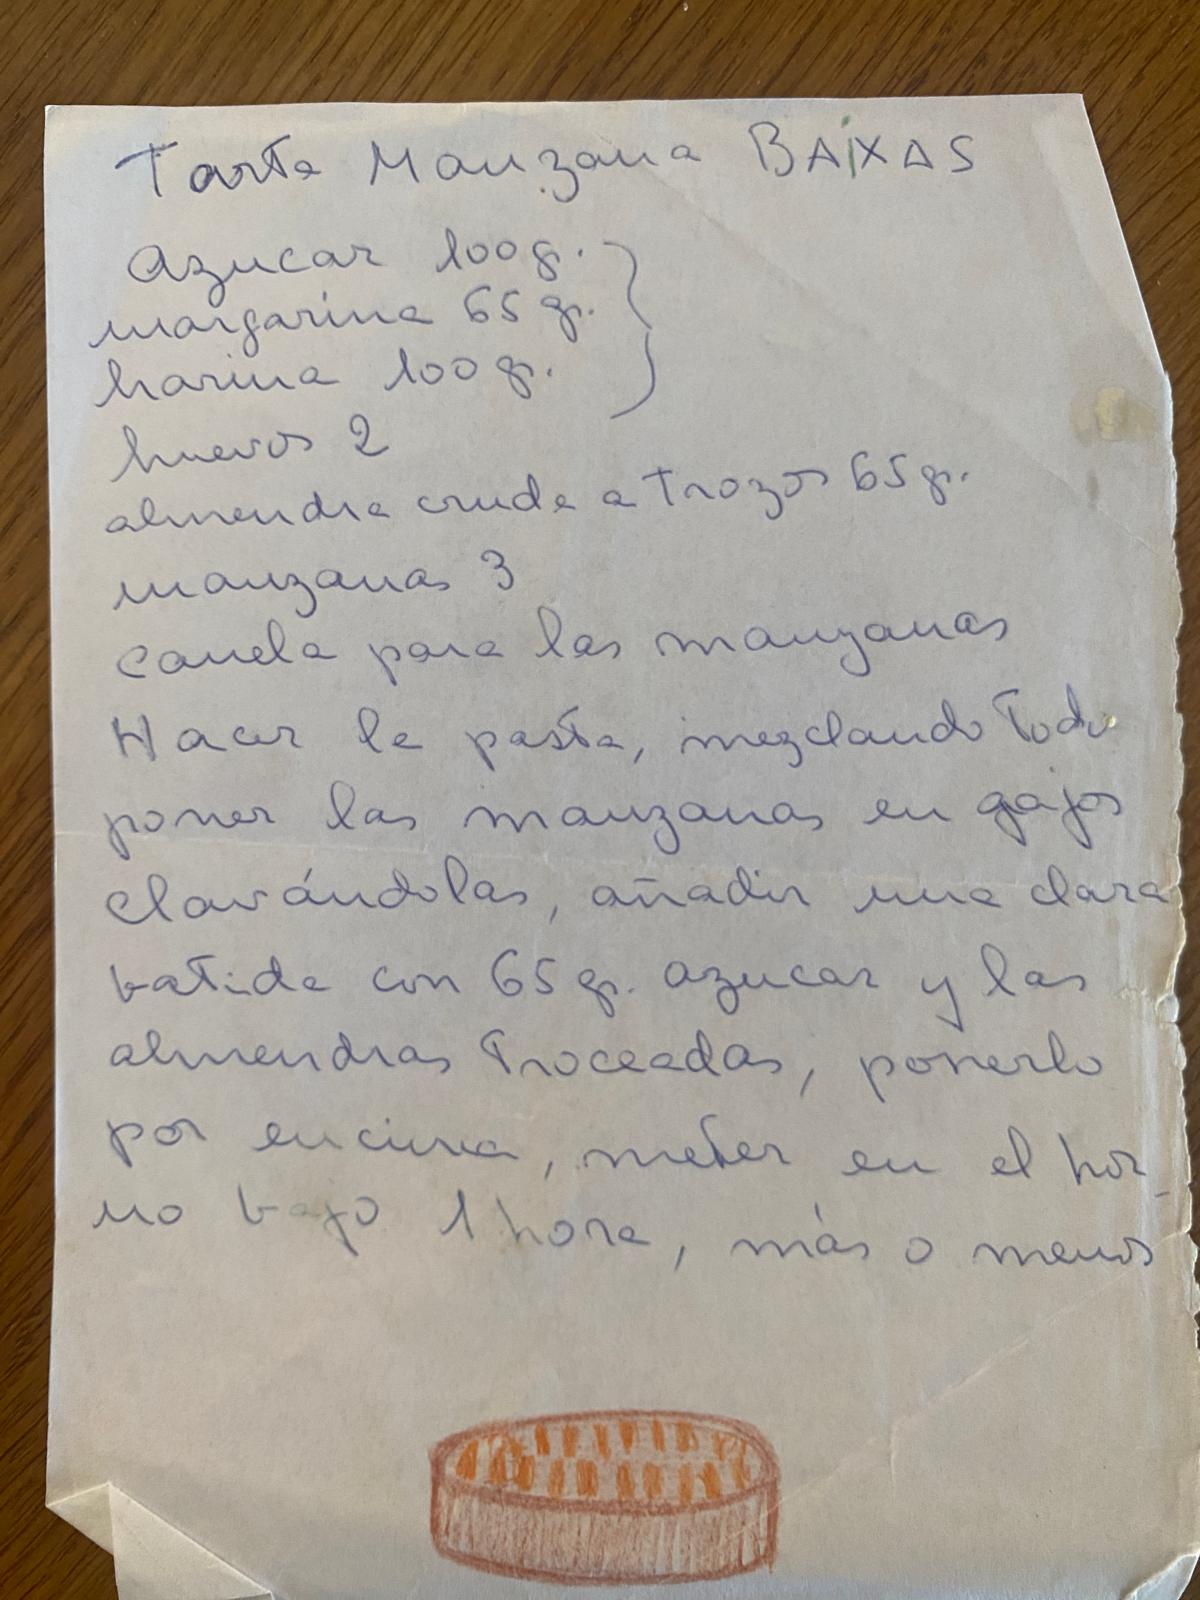 Tarta Manzana BAIXAS
Azucar 100 gr.
margarina 65 gr.
harina 100 gr.
huevos 2
almendra cruda a trozos 65 gr.
manzanas 3
Canela para las manzanas
Hacer la pasta, mezclando todo
poner las manzanas en gajos
clavándolas, añadir una clara
batida con 65 gr. azucar y las
almendras troceadas, ponerlo
por encima, meter en el hor-
no bajo 1 hora, más o menos